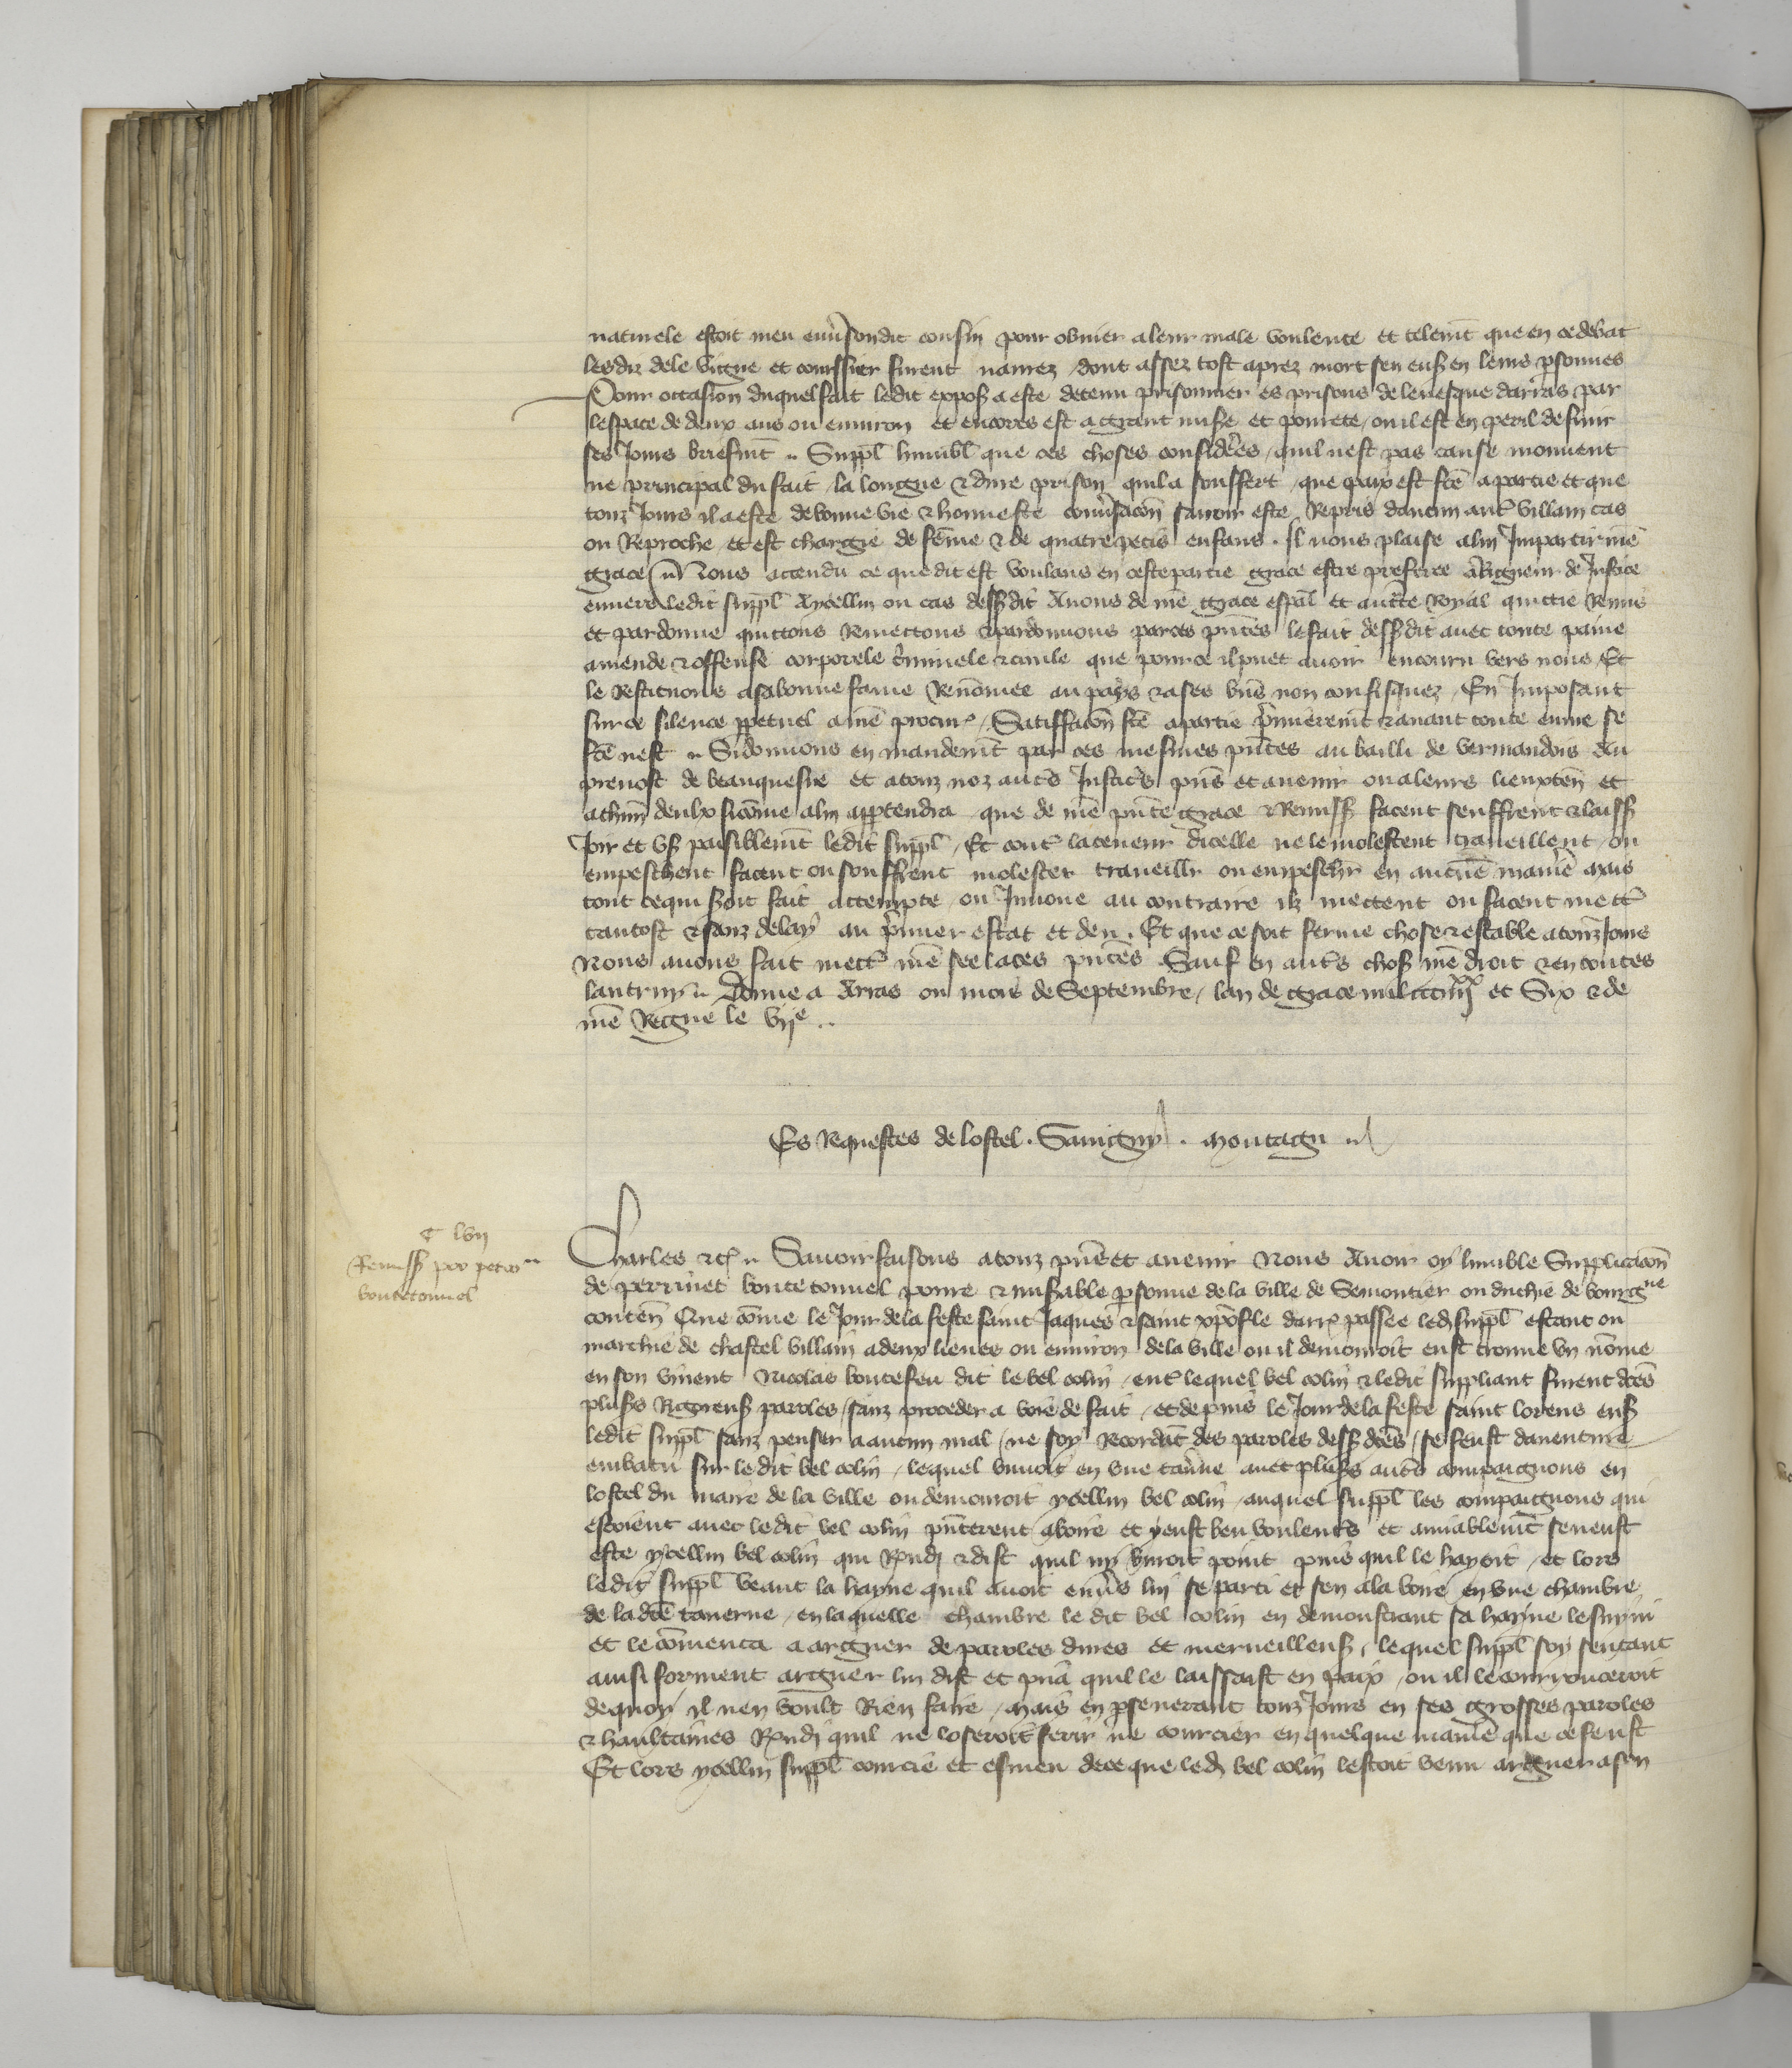 naturele estoit meu enũs sondit cousin pour obuier a leur male voulente et telemt̃ que en ce debat
lesdiz dele vigne et courssier furent naurez dont assez tost aprez mort sen ensˀ en leurs psonnes
Pour occasion duquel fait ledit exposˀ a este detenu prisonnier es prisons de leuesque darras par
lespace de deux ans ou enuiron et encores est a grant misˀe et pourete ou il est en peril de finir
ses Jours briefmt̃ Suppl̃ humbl̃ que ces choses considẽes quil nest pas cause mouuent
ne principal du fait la longue & dure prison quil a souffert que paix est ftẽ a partie et que
touz Jours il a este de bonne vie & honneste conũsacõn sanz auoir este Repris daucun autˀ villain cas
ou Reproche et est chargie de fẽme & de quatre petis enfans. Il nous plaise a luy Impartir nrẽ
grace Nous attendu ce que dit est voulans en ceste partie grace estre preferee a Rigueur de Justice
enuers ledit suppl̃ Aycelluy ou cas dessˀdit Auons de nrẽ grace espãl et auctˀte Royal quictie Remis
et pardonne quictons Remettons & pardonnons par ces pñtes le fait dessˀdit auec toute paine
amende & offense corporele cˀiminele & ciuile que pour ce il puet auoir encouru vers nous Et
le Restituons a sa bonne fame Renõmee au pays & a ses biẽs non confisquez En Imposant
sur ce silence ppetuel a nrẽ procurˀ Satiffacõn ftẽ a partie pˀmieremt̃ & auant toute euure se
ftẽ nest Sidonnons en mandemt̃ par ces mesmes pñtes au bailli de vermandois Au
preuost de beauquesne et a touz noz autˀs Justicˀs pñs et auenir ou a leurs lieuxteñ et
a chũn deulx sicõme a luy appartendra que de nrẽ pñte grace & Remissˀ facent seuffrent & laissˀ
Joir et vsˀ paisiblemt̃ ledit suppl̃ Et contˀ la teneur dicelle ne le molestent traueillent ou
empeschent facent ou souffrent molester traueillˀr ou empeschˀr en aucũe maniˀe Mais
tout ce qui sˀoit fait attempte ou Innoue au contraire ilz mettent ou facent mettˀ
tantost & sanz delay au pˀmier estat et deu. Et que ce soit ferme chose & estable a touz Jours
Nous auons fait mettˀ nrẽ seel a ces pñtes Sauf en autˀs chosˀ nrẽ droit & en toutes
lautruy Donne a Arras ou mois de Septembre lan de grace mil ccciiijxx et Six & de
nrẽ Regne le vije
Es Requestes de lostel. Sauigny. Montagu
C lvij
Remissˀ pour perrin
boutetonnel
Charles &c Sauoir faisons a touz pñs et auenir Nous Auoir oy humble Supplicacõn
de perrinet boutetonnel poure & misˀable psonne de la ville de Semontier ou duchie de bourgne
conteñ Que cõme le Jour de la feste saint Jaques & saint xpõfle darrˀ passee ledˀ suppl̃ estant ou
marchie de chastel villain a deux lieues ou enuiron de la ville ou il demouroit eust trouue vn nõme
en son viuent Nicolas boutefeu dit le bel colin entˀ lequel bel colin & ledit suppliant furent dcẽs
plusˀs Rigoreusˀ paroles sanz proceder a voie de fait et depuis le Jour de la feste saint lorens ensˀ
ledit suppl̃ sanz penser a aucun mal ne soy Recordãt des paroles dessˀ dcẽs se feust dauenture
embatu sur le dit bel colin lequel buuoit en vne tauˀne auec plusˀs autˀs compaignons en
lostel du maire de la ville ou demouroit ycelluy bel colin auquel suppl̃ les compaignons qui
estoient auec ledit bel colin pñterent a boire et y eust beu voulentˀs et amiablemt̃ se neust
este ycelluy bel colin qui Rpndˀ & dist quil ny buroit point puis quil le hayoit et lors
ledit suppl̃ veant la hayne quil auoit enũs luy se parti et sen ala boire en vne chambre
de la dcẽ tauerne en laquelle chambre le dit bel colin en demonstrant sa hayne le suyui
et le cõmenca a arguer de paroles dures et merueilleusˀ lequel suppl̃ soy sentant
ainsi forment arguer luy dist et pria quil le laissast en paix ou il le courrouceroit
dequoy il nen voult Rien faire mais en pseuerant touz Jours en ses grosses paroles
& haultaines Rpndˀ quil ne loseroit ferir ne courcier en quelque maniˀe que ce feust
Et lors ycelluy suppl̃ courcie et esmeu de ce que ledˀ bel colin lestoit venu arguer a son